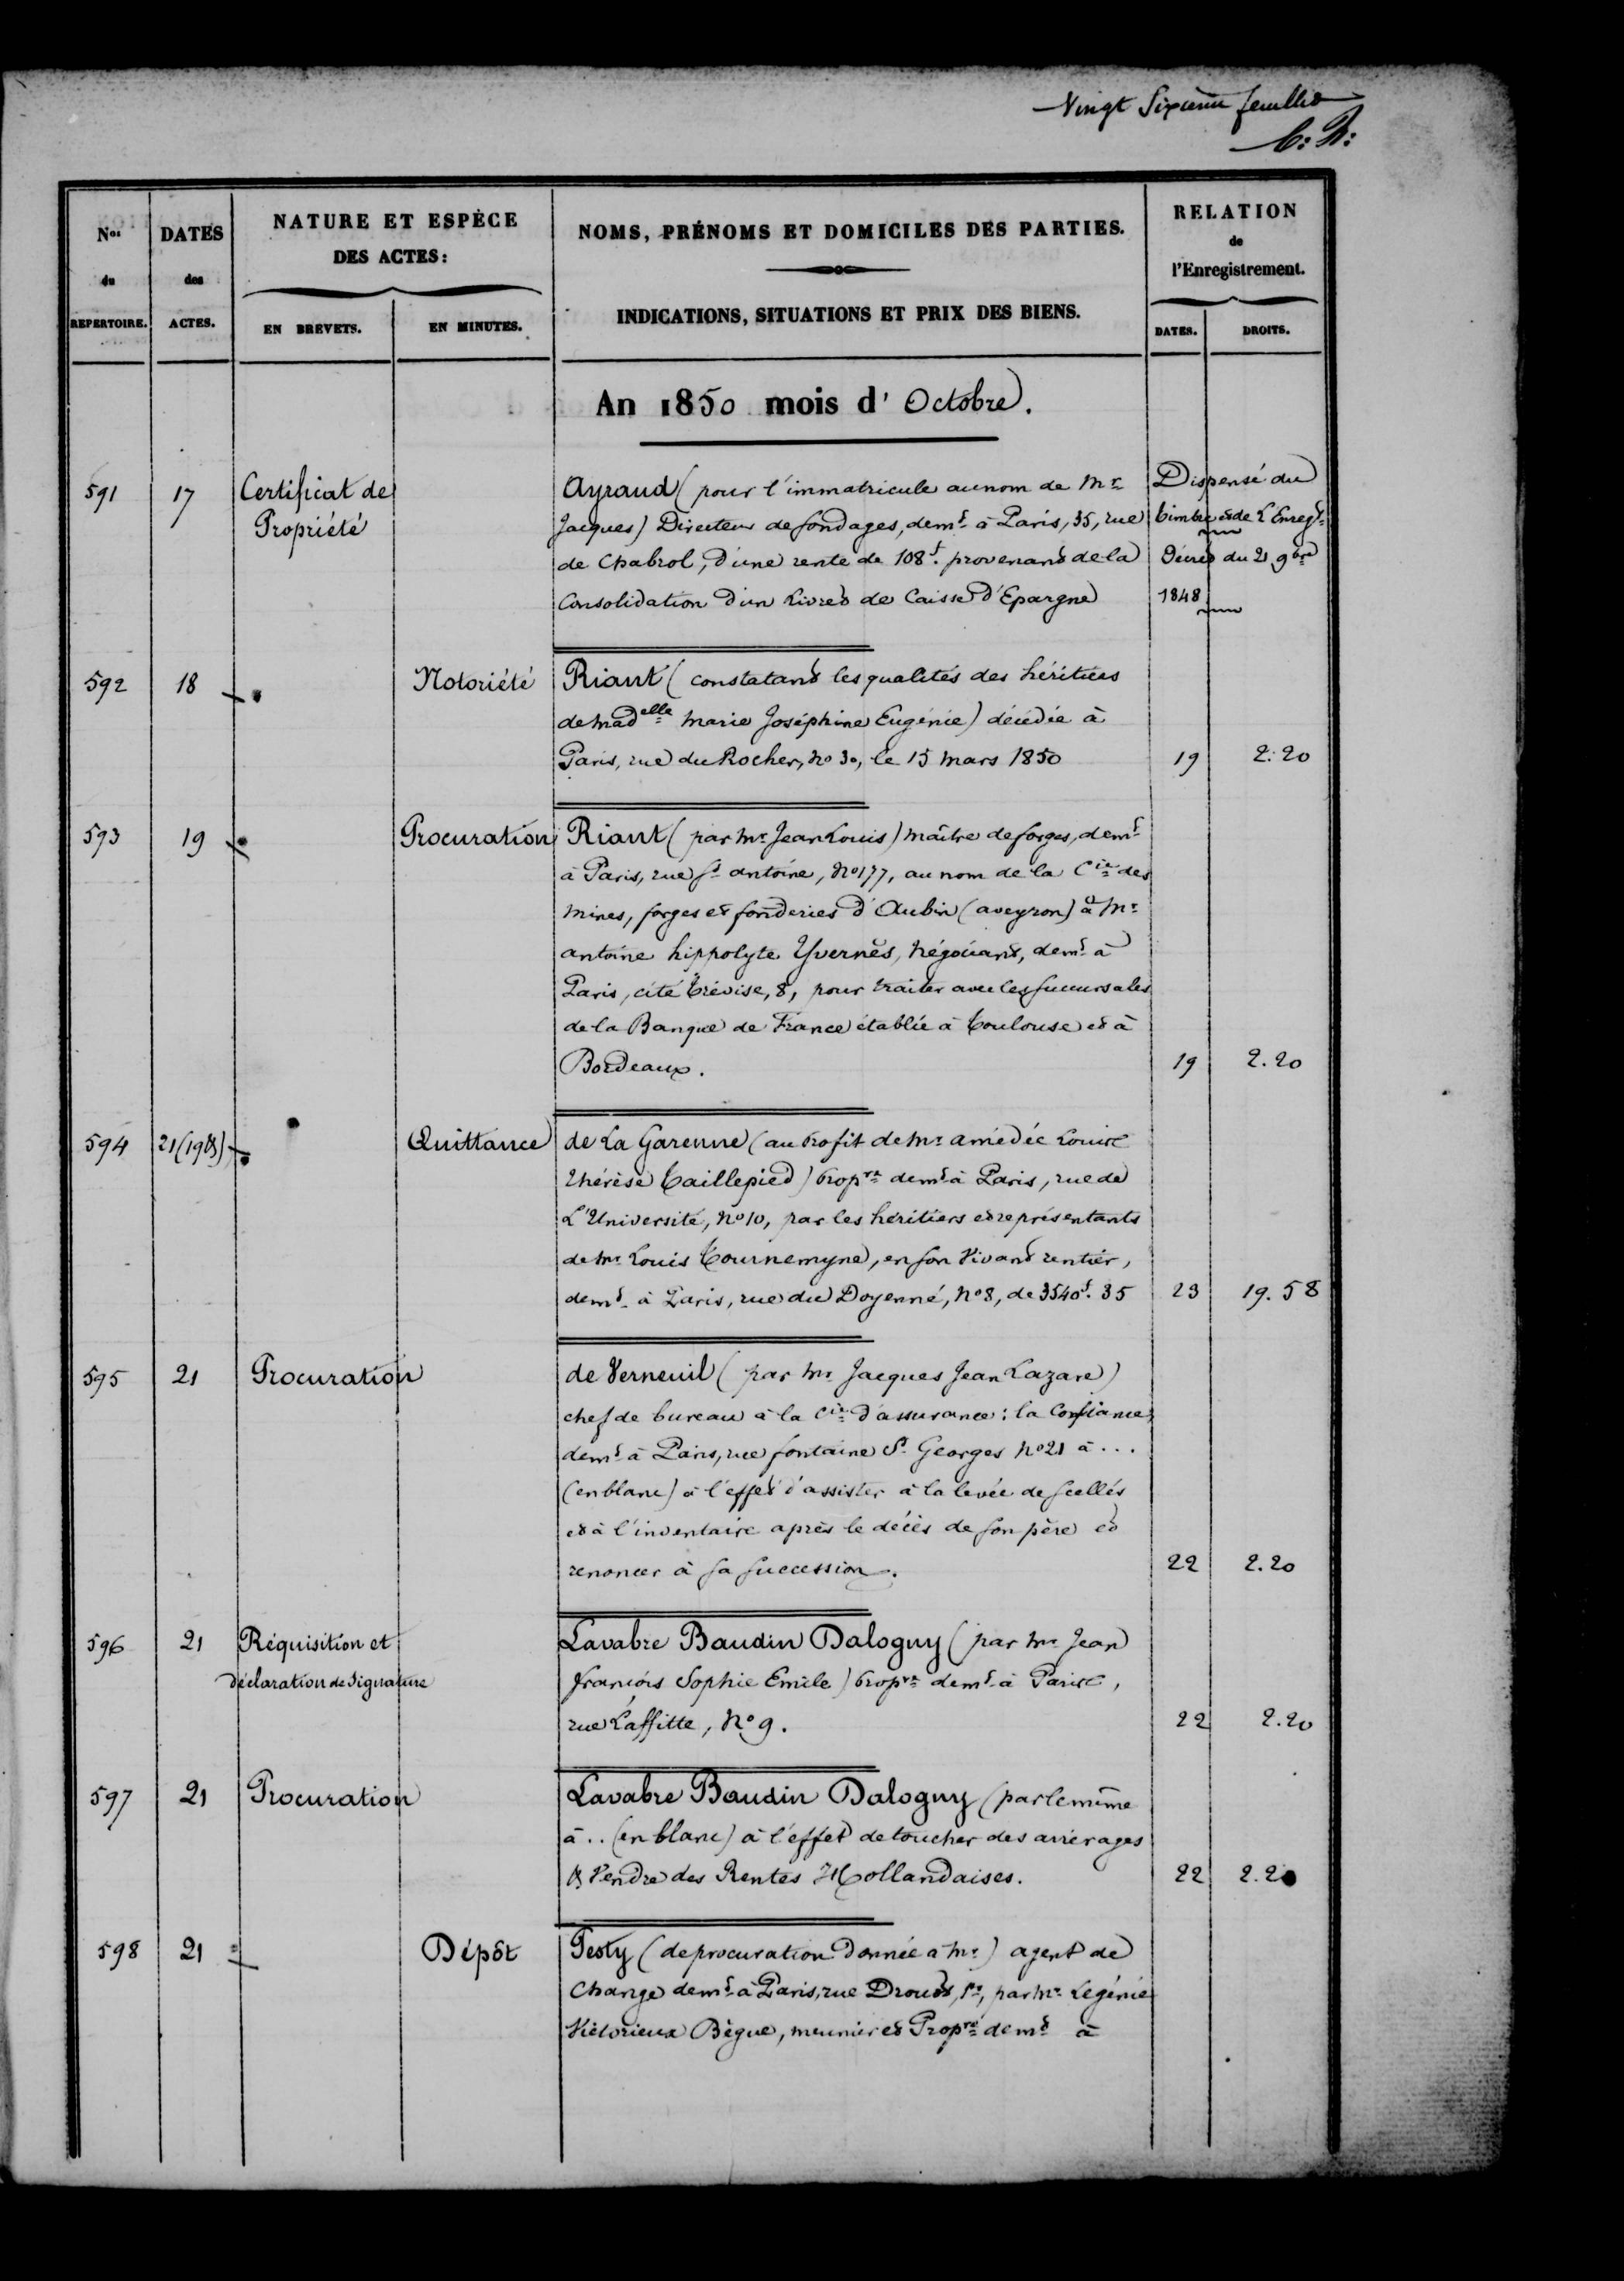 Vingt Sixième feuillet
Nos du REPERTOIRE.
DATES des ACTES.
NATURE ET ESPÈCE DES ACTES:
EN BREVETS.
EN MINUTES.
NOMS, PRÉNOMS ET DOMICILES DES PARTIES.
INDICATIONS, SITUATIONS ET PRIX DES BIENS.
RELATION de l'Enregistrement.
DATES.
DROITS.
An 1850 mois d' Octobre.
591 17 Certificat de Ayraud (pour l'immatricule au nom de Mr Dispensé du
Propriété Jacques) Directeur de sondages, demt à Paris, 35, rue timbre et de L'Enregt
de Chabrol, d'une rente de 108f. provenant de la Décret du 21 9bre
Consolidation d'un Livret de Caisse d'Epargne 1848
592 18 Notoriété Riant (constatant les qualités des héritiers
de Madelle Marie Joséphine Eugénie) décédée à
Paris, rue du Rocher, No 30, le 15 Mars 1850 19 2.20
593 19 Procuration Riant (par Mr Jean Louis) Maître de forges, demt
à Paris, rue St antoine, No 177, au nom de la Cie des
Mines, forges et fonderies d'Aubin (aveyron) à Mr
antoine hippolyte Yvernès, Négociant, demt à
Paris, cité Trévise, 8, pour traiter avec les succursales
de la Banque de France établie à Toulouse et à
Bordeaux. 19 2.20
594 21 (19 &) Quittance de La Garenne (au profit de Mr amédée Louis
Thérèse Taillepied) Propre demt à Paris, rue de
L'Université, No 10, par les héritiers et représentants
de Mr Louis Tournemyne, en son Vivant rentier,
demt à Paris, rue du Doyenné, No 8, de 3540f. 35 23 19.58
595 21 Procuration de Verneuil (par Mr Jacques Jean Lazare)
chef de bureau à la Cie d'assurance: la Confiance,
demt à Paris, rue fontaine St Georges No 21 à ...
(en blanc) à l'effet d'assister à la levée de scellés
et à l'inventaire après le décès de son père et
renoncer à sa succession. 22 2.20
596 21 Réquisition et Lavabre Baudin Dalogny (par Mr Jean
déclaration de Signature françois Sophie Emile) Propre demt à Paris,
rue Laffitte, No 9. 22 2.20
597 21 Procuration Lavabre Baudin Dalogny (par le même
à .. (en blanc) à l'effet de toucher des arrérages
& Vendre des Rentes Hollandaises. 22 2.20
598 21 Dépôt Testy (de procuration donnée à Mr) agent de
Change demt à Paris, rue Drouot, par Mr Legénie
Victorieux Bègue, meunier et Propre demt à